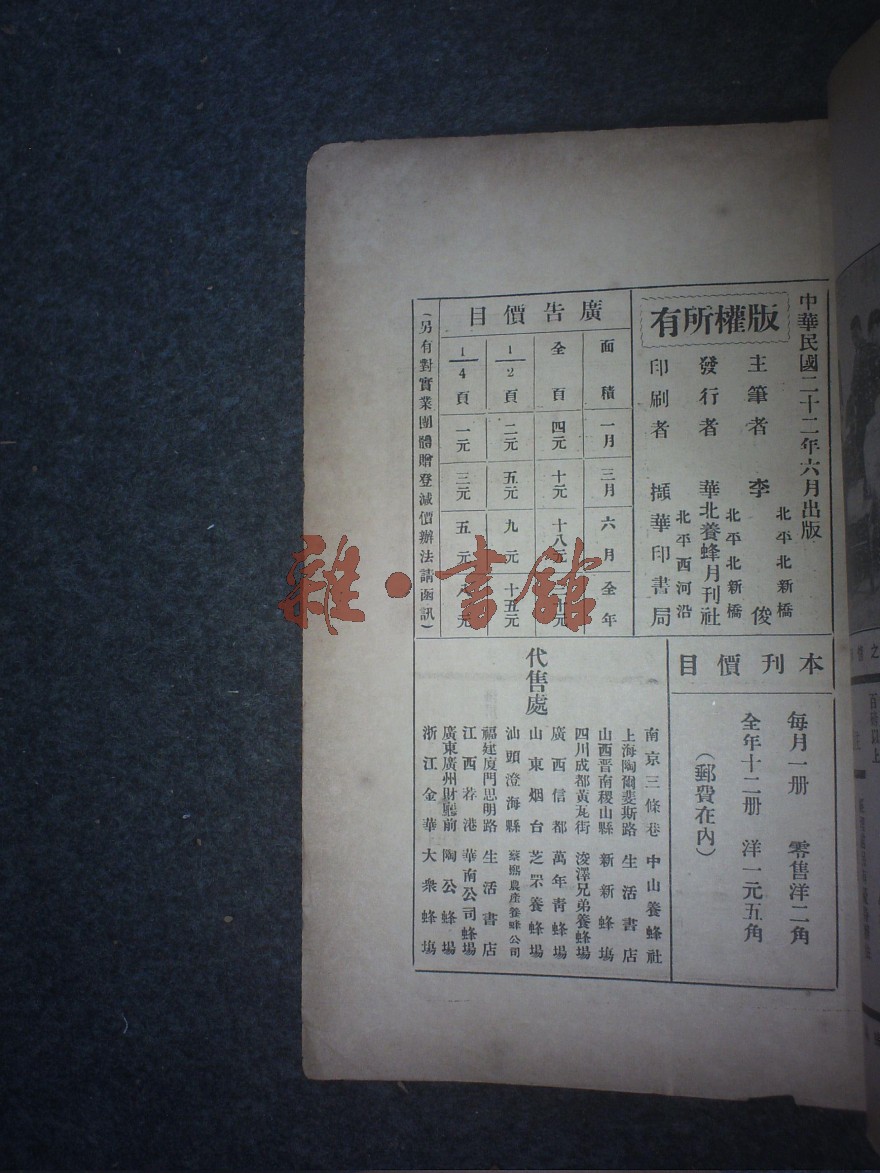 中華民國二十二年六月出版
版權所有
主筆者 李俊
北平北新橋
發行者 華北養蜂月刊社
北平北新橋
印刷者 擷華印書局
北平西河沿
廣告價目
面積 一月 三月 六月 全年
全百 四元 十元 十八元 十元
1/2頁 二元 五元 九元 十五元
1/4頁 一元 三元 五元 八元
(另有對實業團體贈登減價辦法請函訊)
本刊價目
每月一册 零售洋二角
全年十二册 洋一元五角
(郵費在內)
代售處
南京三條巷 中山養蜂社
上海陶爾斐斯路 生活書店
山西晋南稷山縣 新新蜂塲
四川成都黃瓦街 浚澤兄弟養蜂場
廣西信都 萬年青蜂場
山東烟台 芝罘養蜂場
汕頭澄海縣 農產養蜂公司
福建廈門思明路 生活書店
江西荐港 華南公司蜂場
廣東廣州財廳前 陶公蜂場
浙江金華 大衆蜂塲
雜·書館